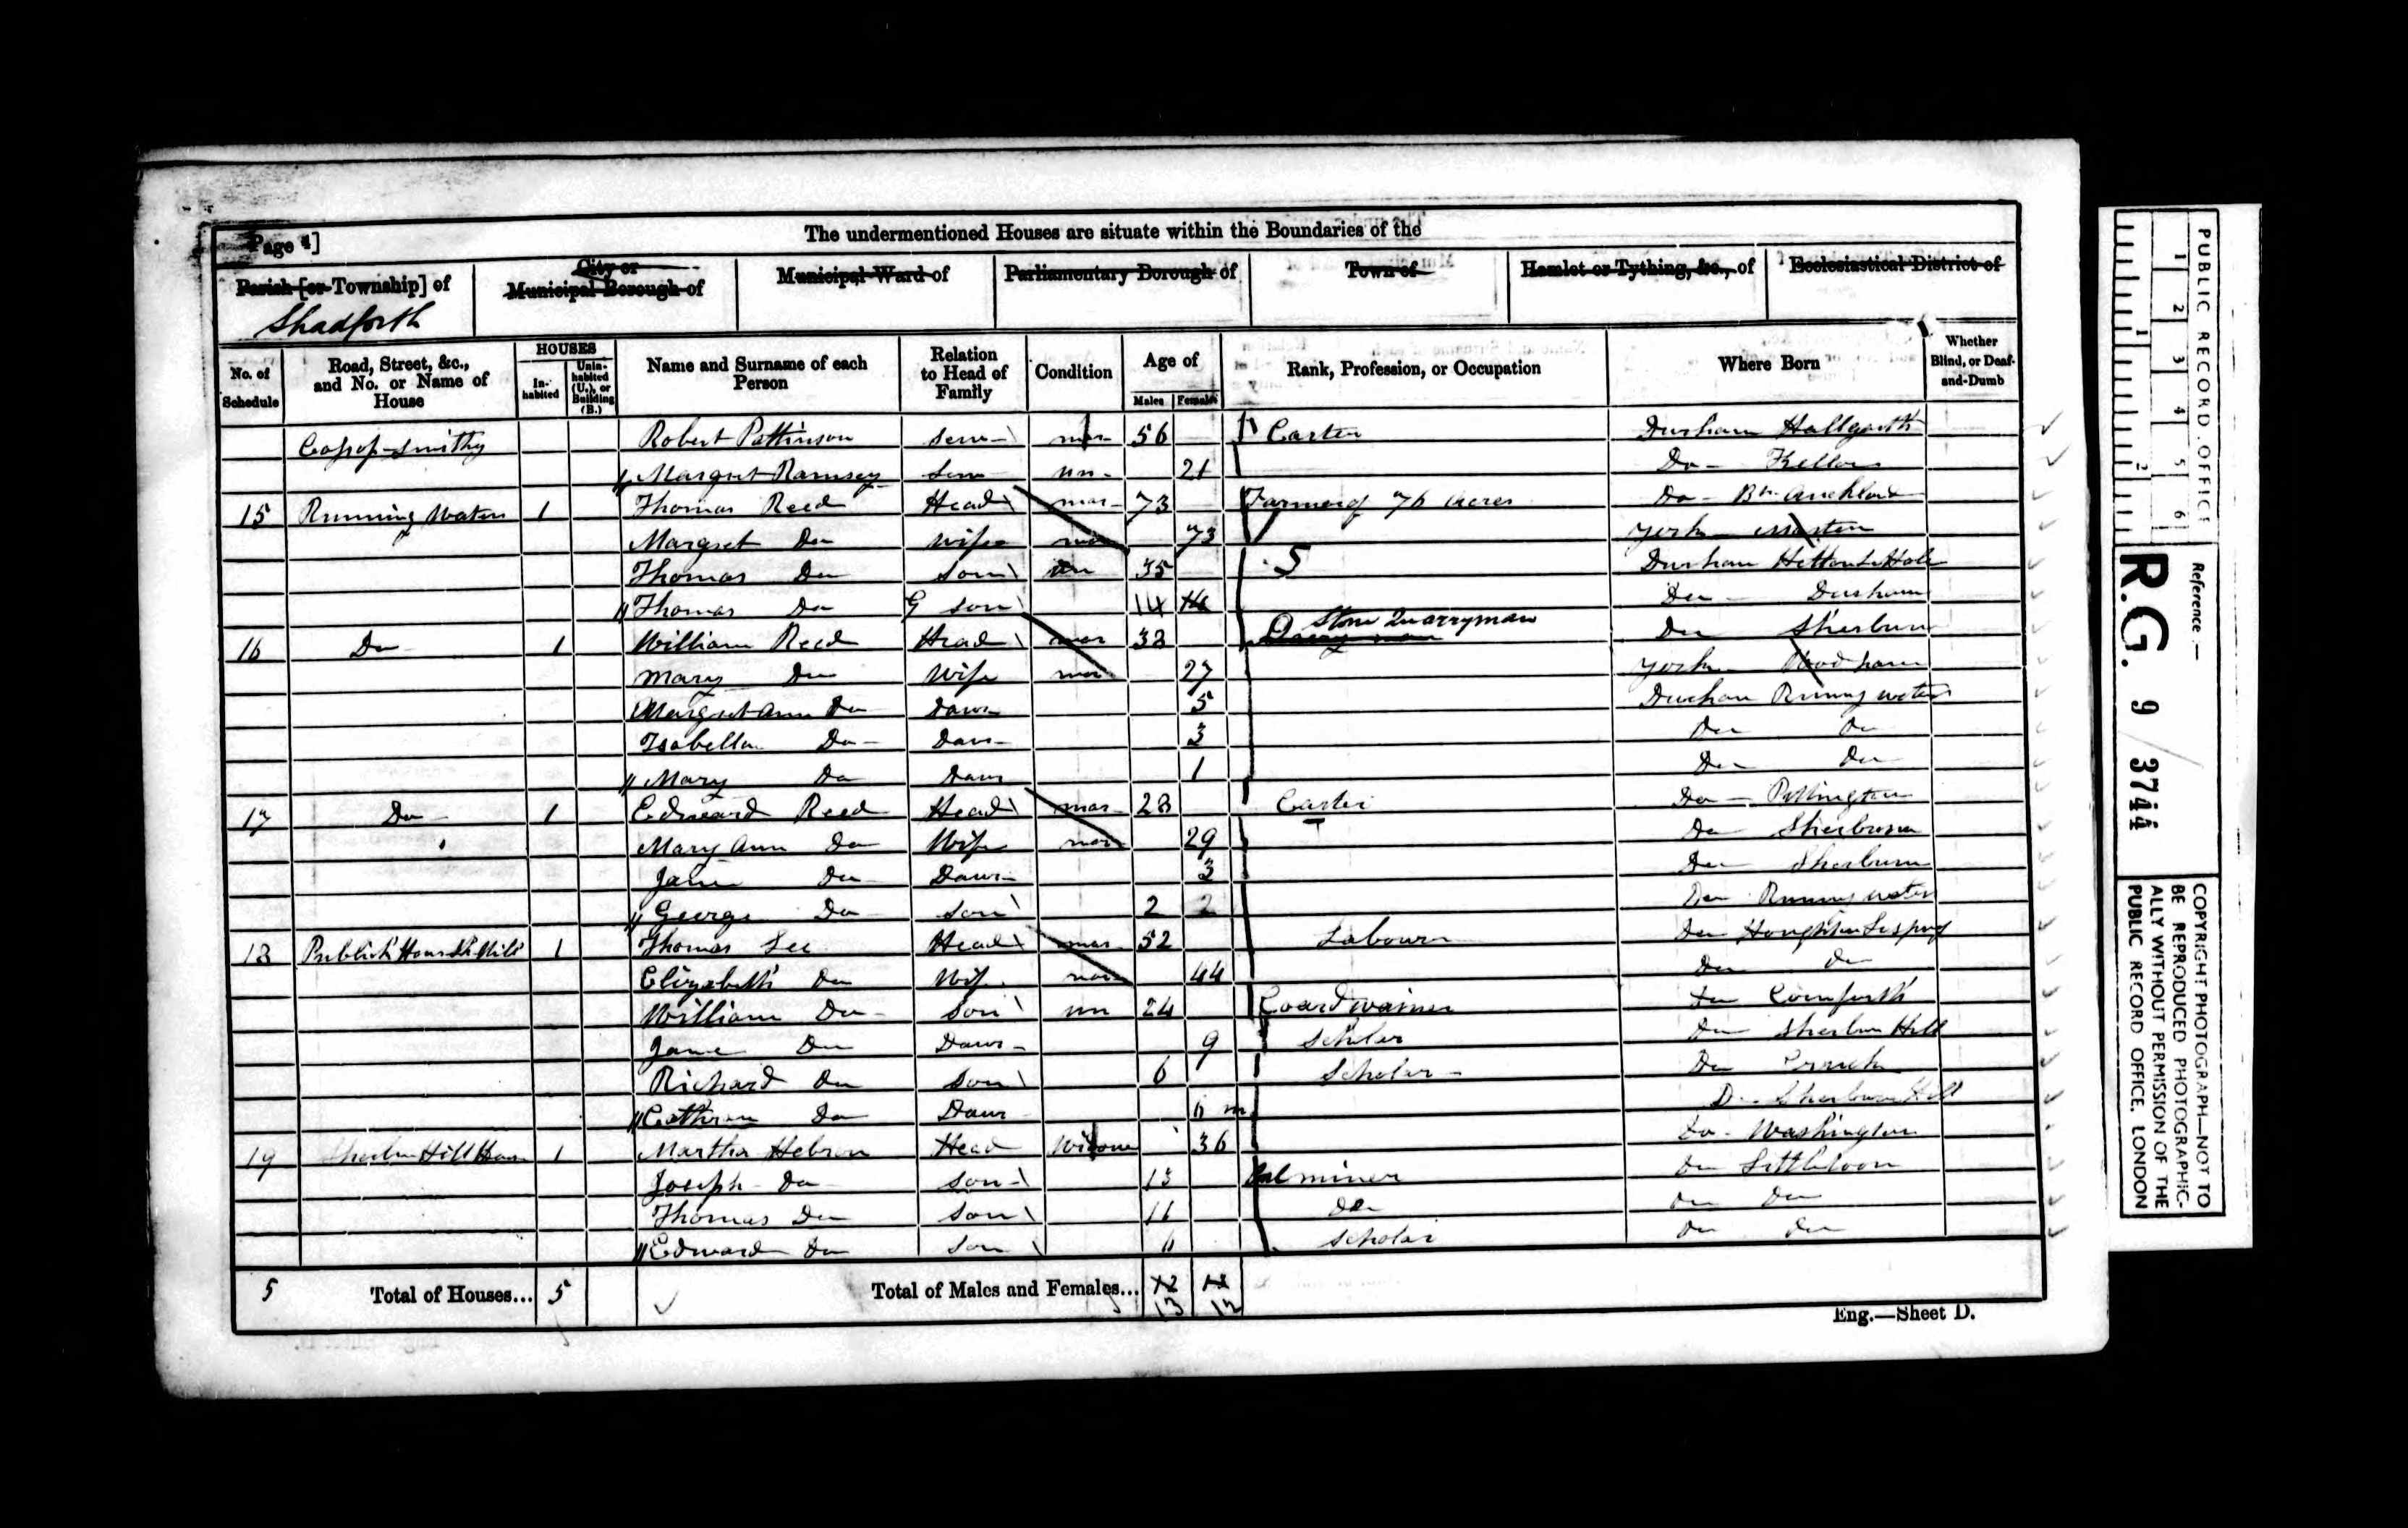 Page 4]
The undermentioned Houses are situate within the Boundaries of the
Parish [or Township] of
City or Municipal Borough of
Municipal Ward of
Parliamentary Borough of
Town of
Hamlet or Tything, &c., of
Ecclesiastical District of
Shadforth
No. of Schedule
Road, Street, &c., and No. or Name of House
HOUSES
In-habited
Unin-habited (U.), or Building (B.)
Name and Surname of each Person
Relation to Head of Family
Condition
Age of
Males
Females
Rank, Profession, or Occupation
Where Born
Whether Blind, or Deaf-and-Dumb
smithy Robert Pattinson mar 56 Carter Durham Hallgarth
Margret Ramsey un 21 Do
15 Running Waters 1 Thomas Reed Head mar 73 Farmer of 76 acres Do
Margret Do Wife mar 73 York
Thomas Do son un 35 Durham Hetton Le Hole
Thomas Do G son 14 Do Durham
16 Do 1 William Reed Head mar Stone Quarryman Do Sherburn
Mary Do Wife mar 27 York
Margret Ann Do Daur 5 Durham Runing waters
Isabella Do Daur 3 Do Do
Mary Do Daur 1 Do Do
17 Do 1 Edward Reed Head mar 28 Carter Do Pittington
Mary Ann Do Wife mar 29 Do Sherburn
Jane Do Daur 3 Do Sherburn
George Do son 2 Do Runing waters
18 1 Thomas Lee Head mar 52 Labourer Do
Elizabeth Do Wife mar 44 Do Do
William Do son un 24 Coardwainer Do Cornforth
Jane Do Daur 9 Do Sherburn Hill
Richard Do son 6 Scholar Do
Do Daur Do Sherburn Hill
19 1 Martha Hebron Head 36 Do Washington
Joseph Do son 13 miner Do
Thomas Do son 11 Do Do Do
Edward Do son scholar Do Do
5 Total of Houses... 5
Total of Males and Females...
13 12
Eng.—Sheet D.
PUBLIC RECORD OFFICE
1 2 3 4 5 6
1 2
Reference:—
R.G. 9 / 3744
COPYRIGHT PHOTOGRAPH—NOT TO
BE REPRODUCED PHOTOGRAPHIC-
ALLY WITHOUT PERMISSION OF THE
PUBLIC RECORD OFFICE, LONDON